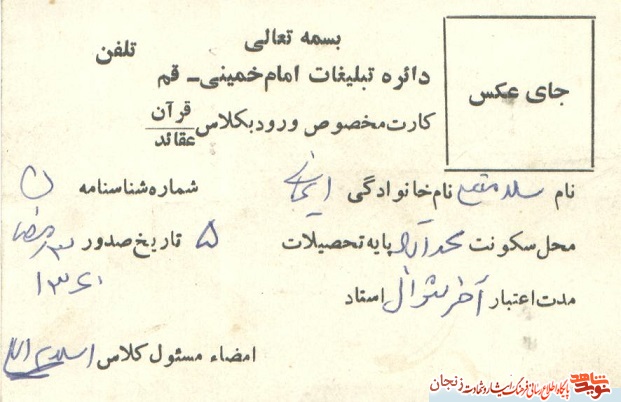 بسمه تعالی
تلفن
دائره تبلیغات امام خمینی - قم
جای عکس
کارت مخصوص ورود بکلاس قرآن
عقائد
نام نام خانوادگی شماره شناسنامه
محل سکونت پایه تحصیلات ۵ تاریخ صدور
۱۳۶۰
مدت اعتبار آخر شوال استاد
امضاء مسئول کلاس
نوید شاهد پایگاه اطلاع رسانی فرهنگ ایثار و شهادت زنجان